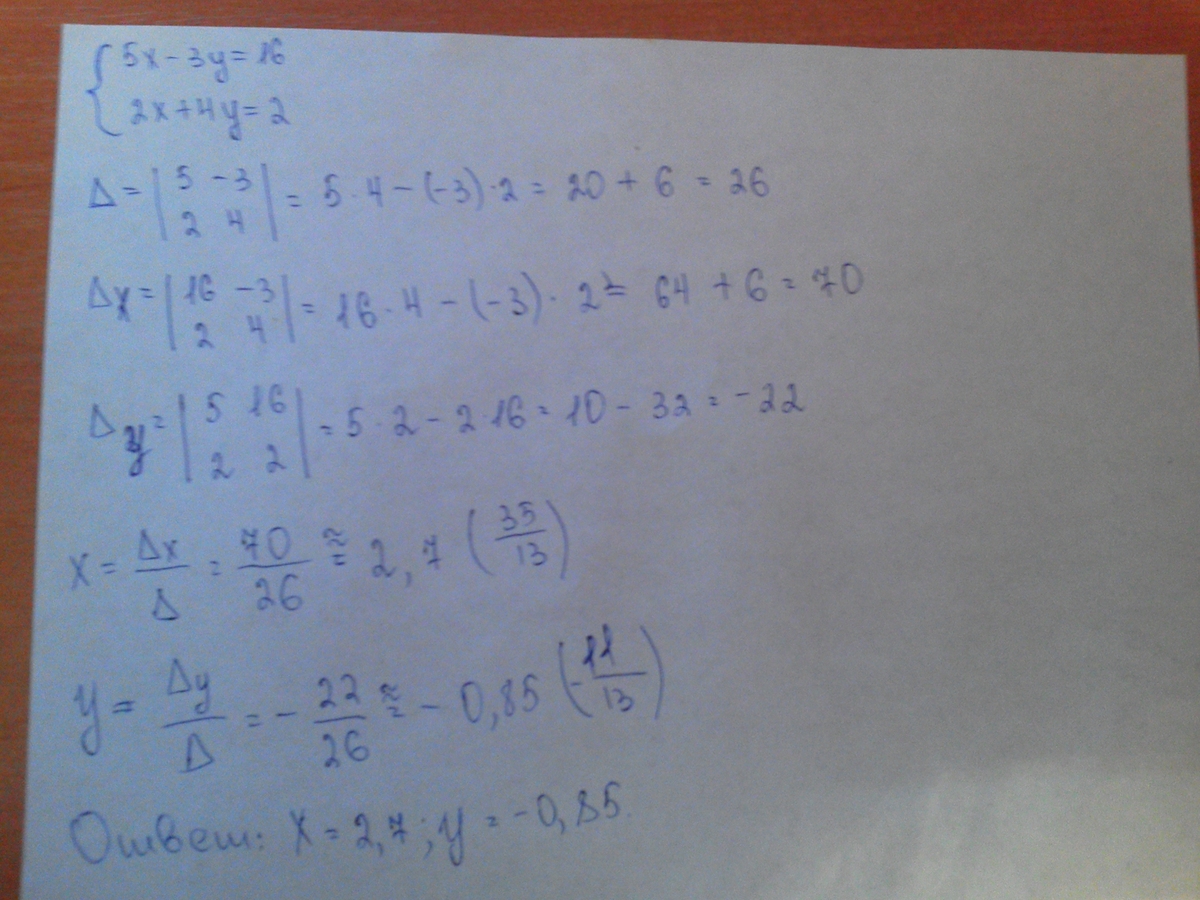 5x - 3y = 16
2x + 4y = 2
Δ = | 5 -3 | = 5 · 4 - (-3) · 2 = 20 + 6 = 26
2 4
Δx = | 16 -3 | = 16 · 4 - (-3) · 2 = 64 + 6 = 70
2 4
Δy = | 5 16 | = 5 · 2 - 2 · 16 = 10 - 32 = -22
2 2
x = Δx/Δ = 70/26 ≈ 2,7 (35/13)
y = Δy/Δ = - 22/26 ≈ - 0,85 (-11/13)
Ответ: x = 2,7; y = -0,85.